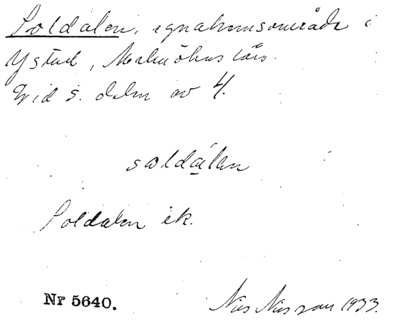 Soldalen, egnahemsområde i
Ystad, Malmöhus län.
Vid s. delen av 4.
soldālen
Soldalen ek.
Nr 5640.
Nils Nilsson 1933.